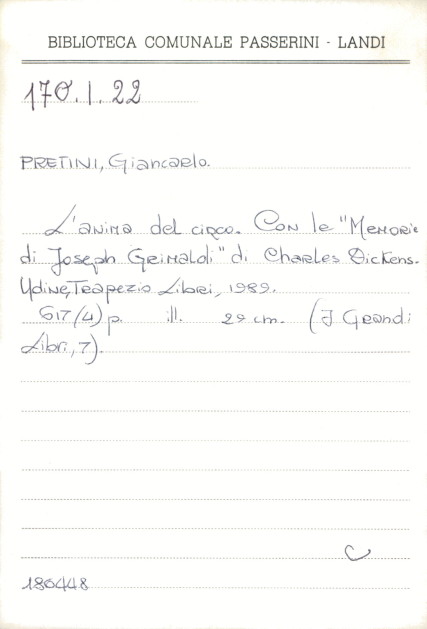 BIBLIOTECA COMUNALE PASSERINI - LANDI
170.I.22
PRETINI, Giancarlo.
L'anima del circo. Con le "Memorie
di Joseph Grimaldi" di Charles Dickens.
Udine, Trapezio Libri, 1989.
617/(4) p. ill. 29 cm. (I Grandi
Libri, 7).
C
180448